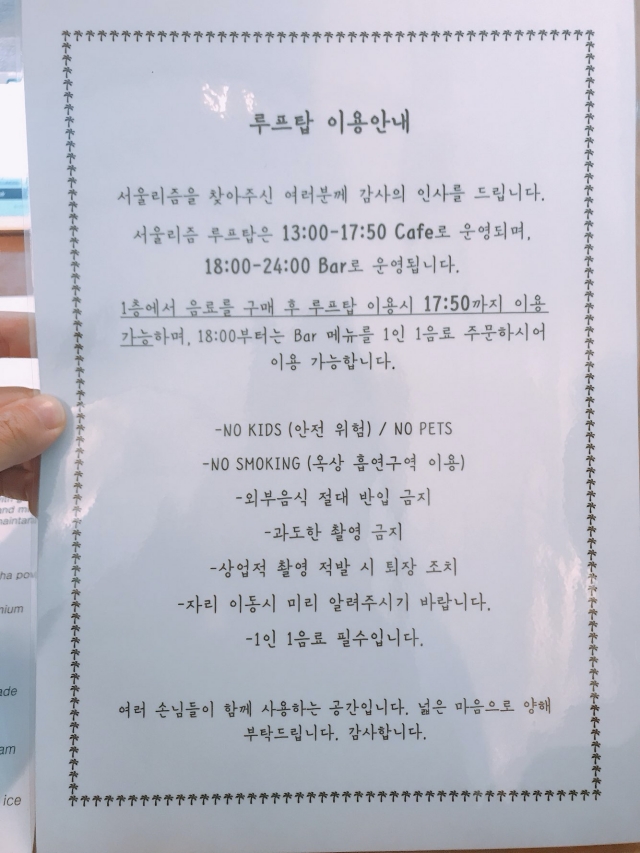 루프탑 이용안내
서울리즘을 찾아주신 여러분께 감사의 인사를 드립니다.
서울리즘 루프탑은 13:00-17:50 Cafe로 운영되며,
18:00-24:00 Bar로 운영됩니다.
1층에서 음료를 구매 후 루프탑 이용시 17:50까지 이용
가능하며, 18:00부터는 Bar 메뉴를 1인 1음료 주문하시어
이용 가능합니다.
-NO KIDS (안전 위험) / NO PETS
-NO SMOKING (옥상 흡연구역 이용)
-외부음식 절대 반입 금지
-과도한 촬영 금지
-상업적 촬영 적발 시 퇴장 조치
-자리 이동시 미리 알려주시기 바랍니다.
-1인 1음료 필수입니다.
여러 손님들이 함께 사용하는 공간입니다. 넓은 마음으로 양해
부탁드립니다. 감사합니다.
ice